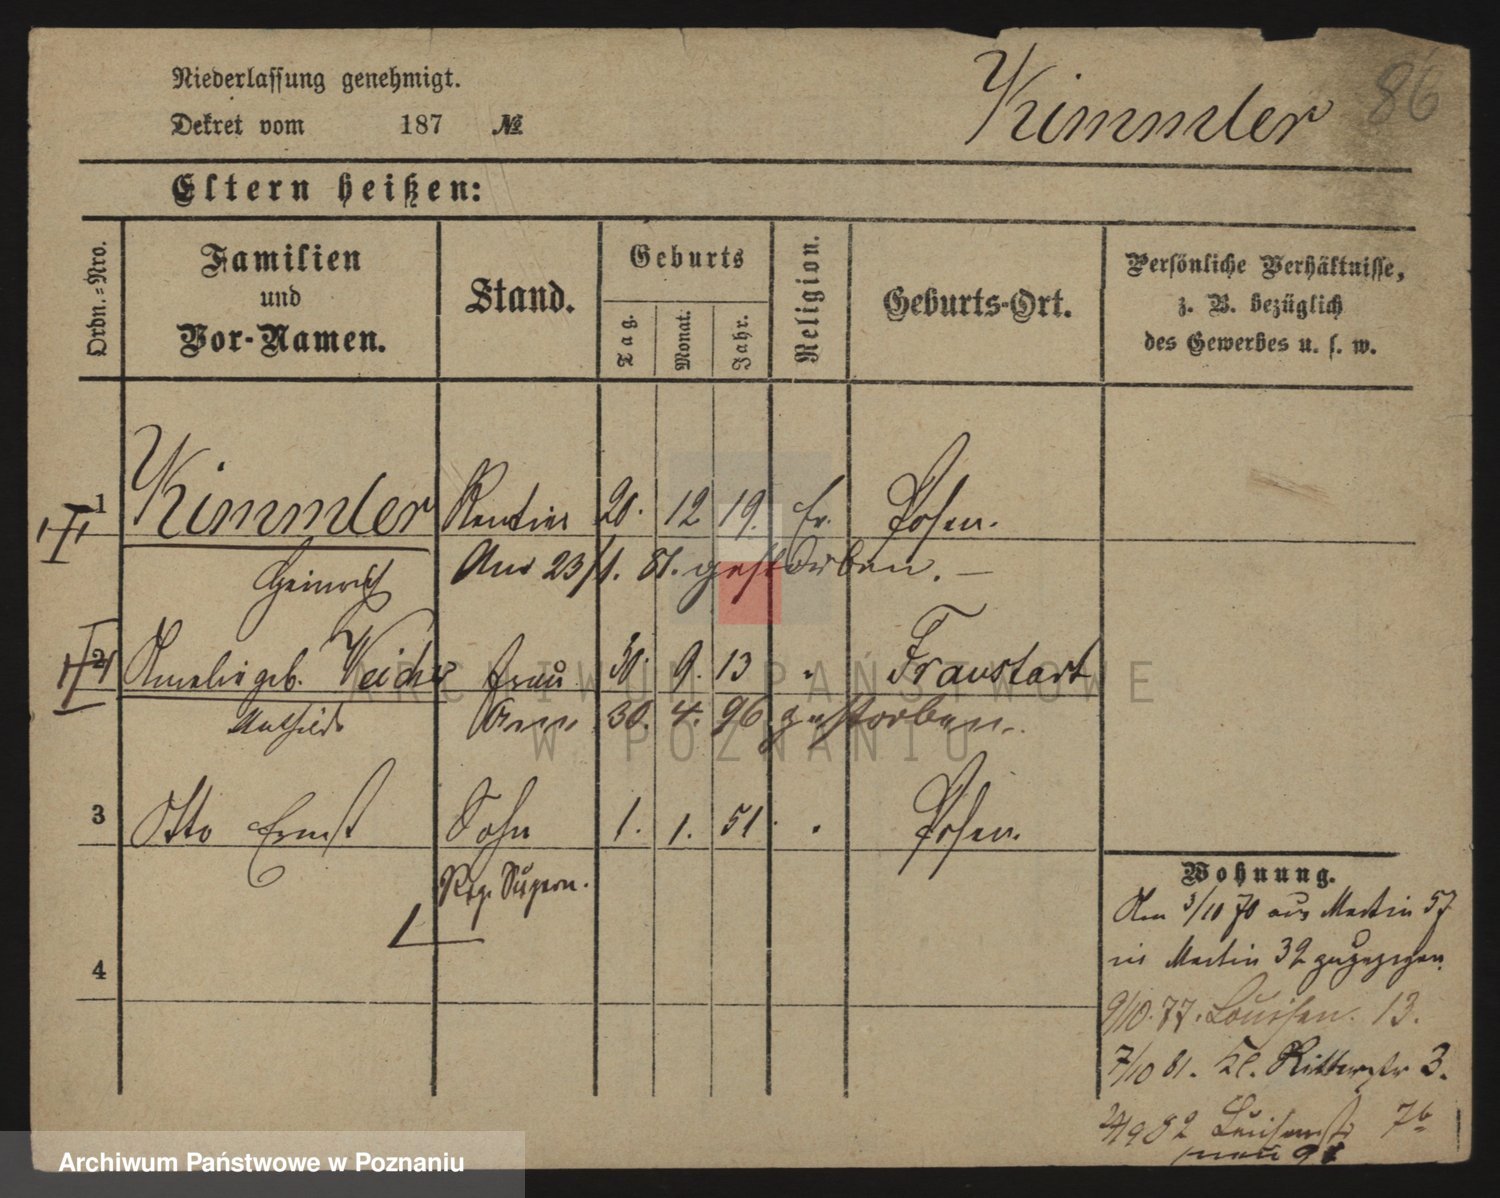 Niederlassung genehmigt.
Dekret vom 187 №
Kimmler 86
Eltern heißen:
Ordn.-Nro.
Familien und Vor-Namen.
Stand.
Geburts
Tag.
Monat.
Jahr.
Religion.
Geburts-Ort.
Persönliche Verhältnisse,
z. B. bezüglich
des Gewerbes u. s. w.
1 Kimmler Rentier 20. 12 19. Ev. Posen.
Heinrich Am 23/1. 81. gestorben. —
2 Amalie geb. Weicher Frau 30. 9. 13 " Fraustadt
Mathilde Am 30. 4. 96 gestorben.
3 Otto Ernst Sohn 1. 1. 51. " Posen.
Reg. Supern.
4
Wohnung.
Am 3/10 70 aus Martin 57
in Martin 32 zugezogen.
9/10. 77. Louisen. 13.
7/10 81. Kl. Ritterstr 3.
82 Louisenstr 7b
neu 9
ARCHIWUM PAŃSTWOWE
W POZNANIU
Archiwum Państwowe w Poznaniu